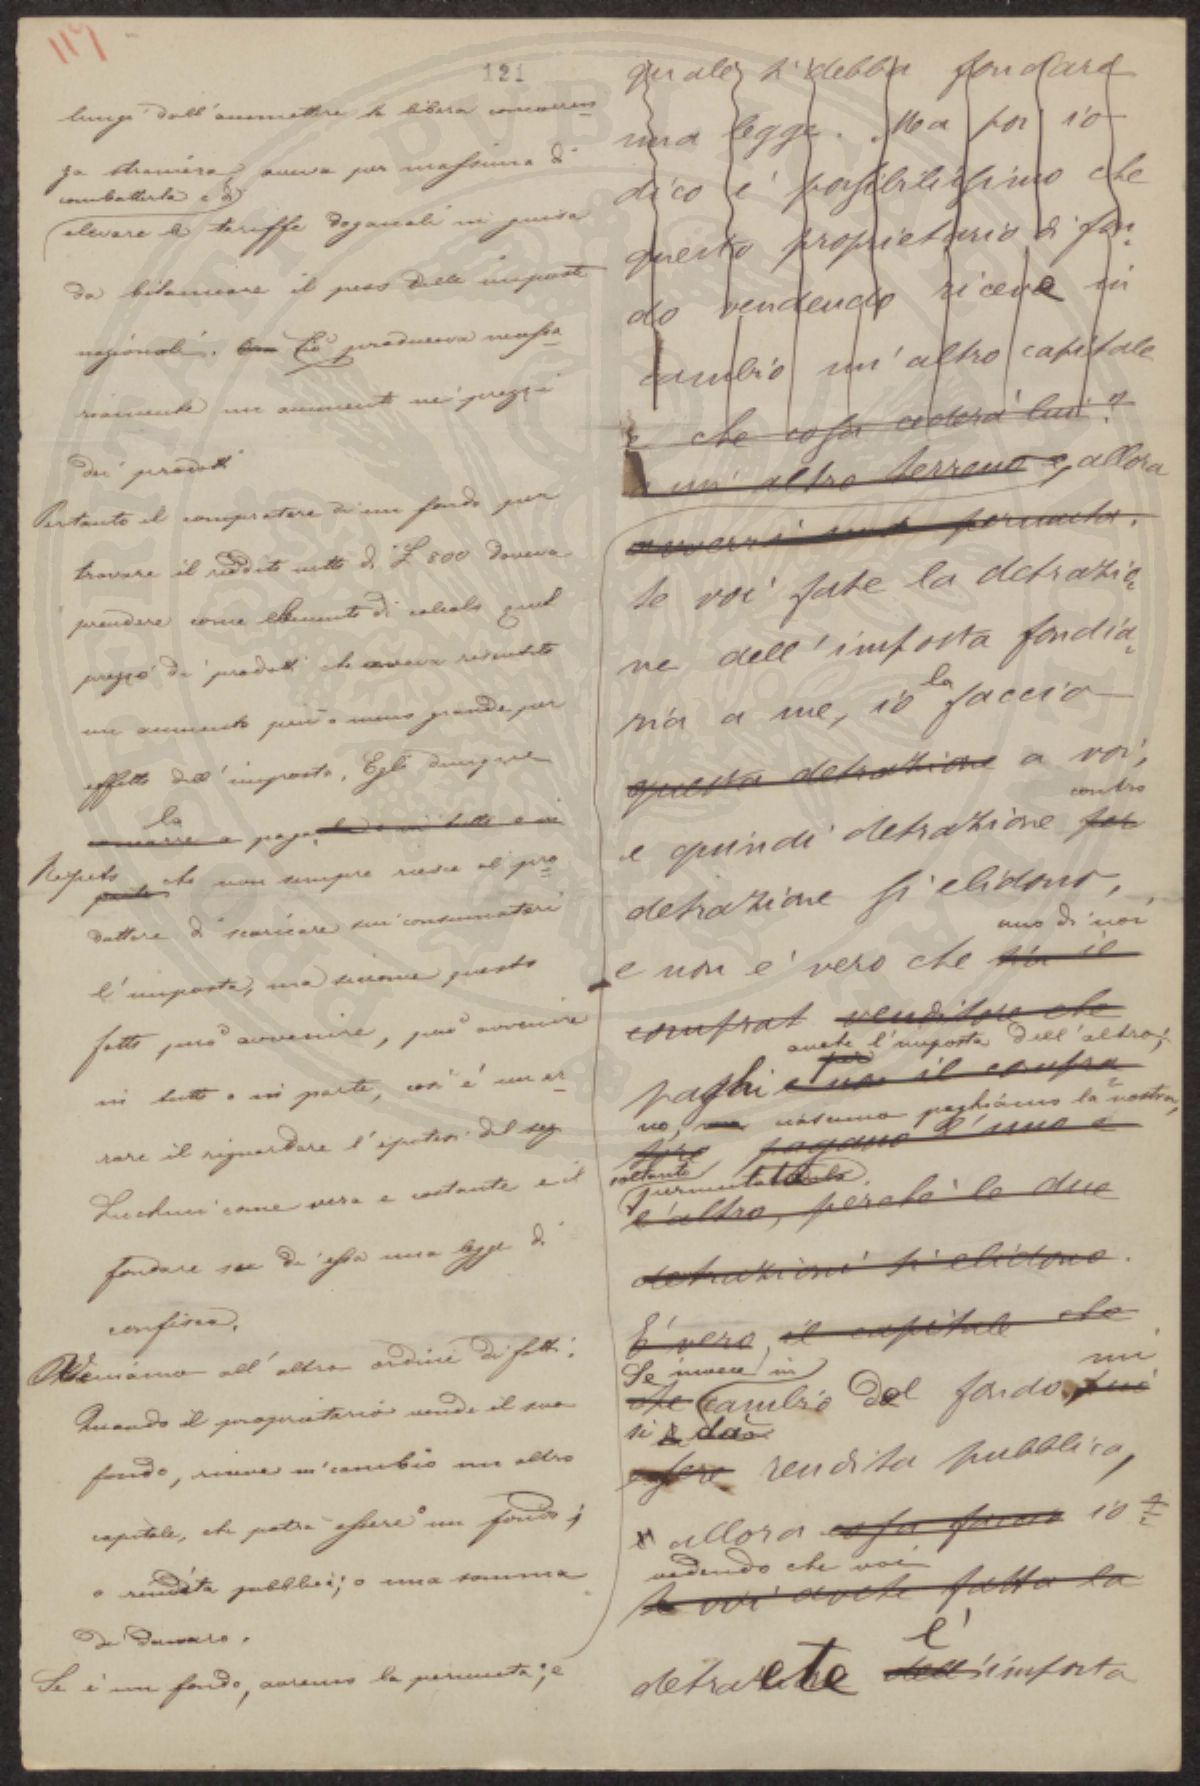 119
121
lungi dall'ammettere la libera concorren-
za straniera, aveva per massima di
combatterla e di
elevare le tariffe doganali in guisa
da bilanciare il peso delle imposte
nazionali. Ciò produceva necessa
riamente un aumento ne' prezzi
dei prodotti
Pertanto il compratore di un fondo per
trovare il reddito netto di £ 800 doveva
prendere come elemento di calcolo quel
prezzo de' prodotti che aveva risentito
un aumento più o meno grande per
effetto dell'imposta. Egli dunque
la
a pagare in tutto o in
Repeto
parte che non sempre riesce al pro
duttore di scaricare sui consumatori
l'imposta, ma siccome questo
fatto può avvenire, può avvenire
in tutto o in parte, così è un er-
rare il riguardare l'ipotesi del seg
Luchini come vera e costante e il
fondare su di essa una legge di
confisca.
Veniamo all'altro ordine di fatti:
Quando il proprietario vende il suo
fondo, riceve in cambio un altro
capitale, che potrà essere o un fondo;
o rendita pubblica; o una somma
di danaro.
Se è un fondo, avremo la permuta; e
quale si debba fondare
una legge. Ma poi io
dico è possibilissimo che
questo proprietario di fon-
do vendendo riceva in
cambio un'altro capitale
e che cosa cederà lui?
o un'altro terreno e, allora
avverrà una permuta.
se voi fate la detrazio-
ne dell'imposta fondia-
ria a me, io la faccio
questa detrazione a voi,
contro
e quindi detrazione per
detrazione si elidono,
uno di noi
e non è vero che sia il
comprat venditore che
anche l'imposta dell'altro;
paghi e non il compra
no, ma ciascuno paghiamo la nostra,
tore pagano l'uno e
soltanto
permutatala.
l'altro, perchè le due
detrazioni si elidono.
E' vero, il capitale che
Se invece in mi
che cambio del fondo può
si dà
essere rendita pubblica,
e allora cosa faccio io
vedendo che voi
se voi avete fatta la
l'
detraete dell'imposta